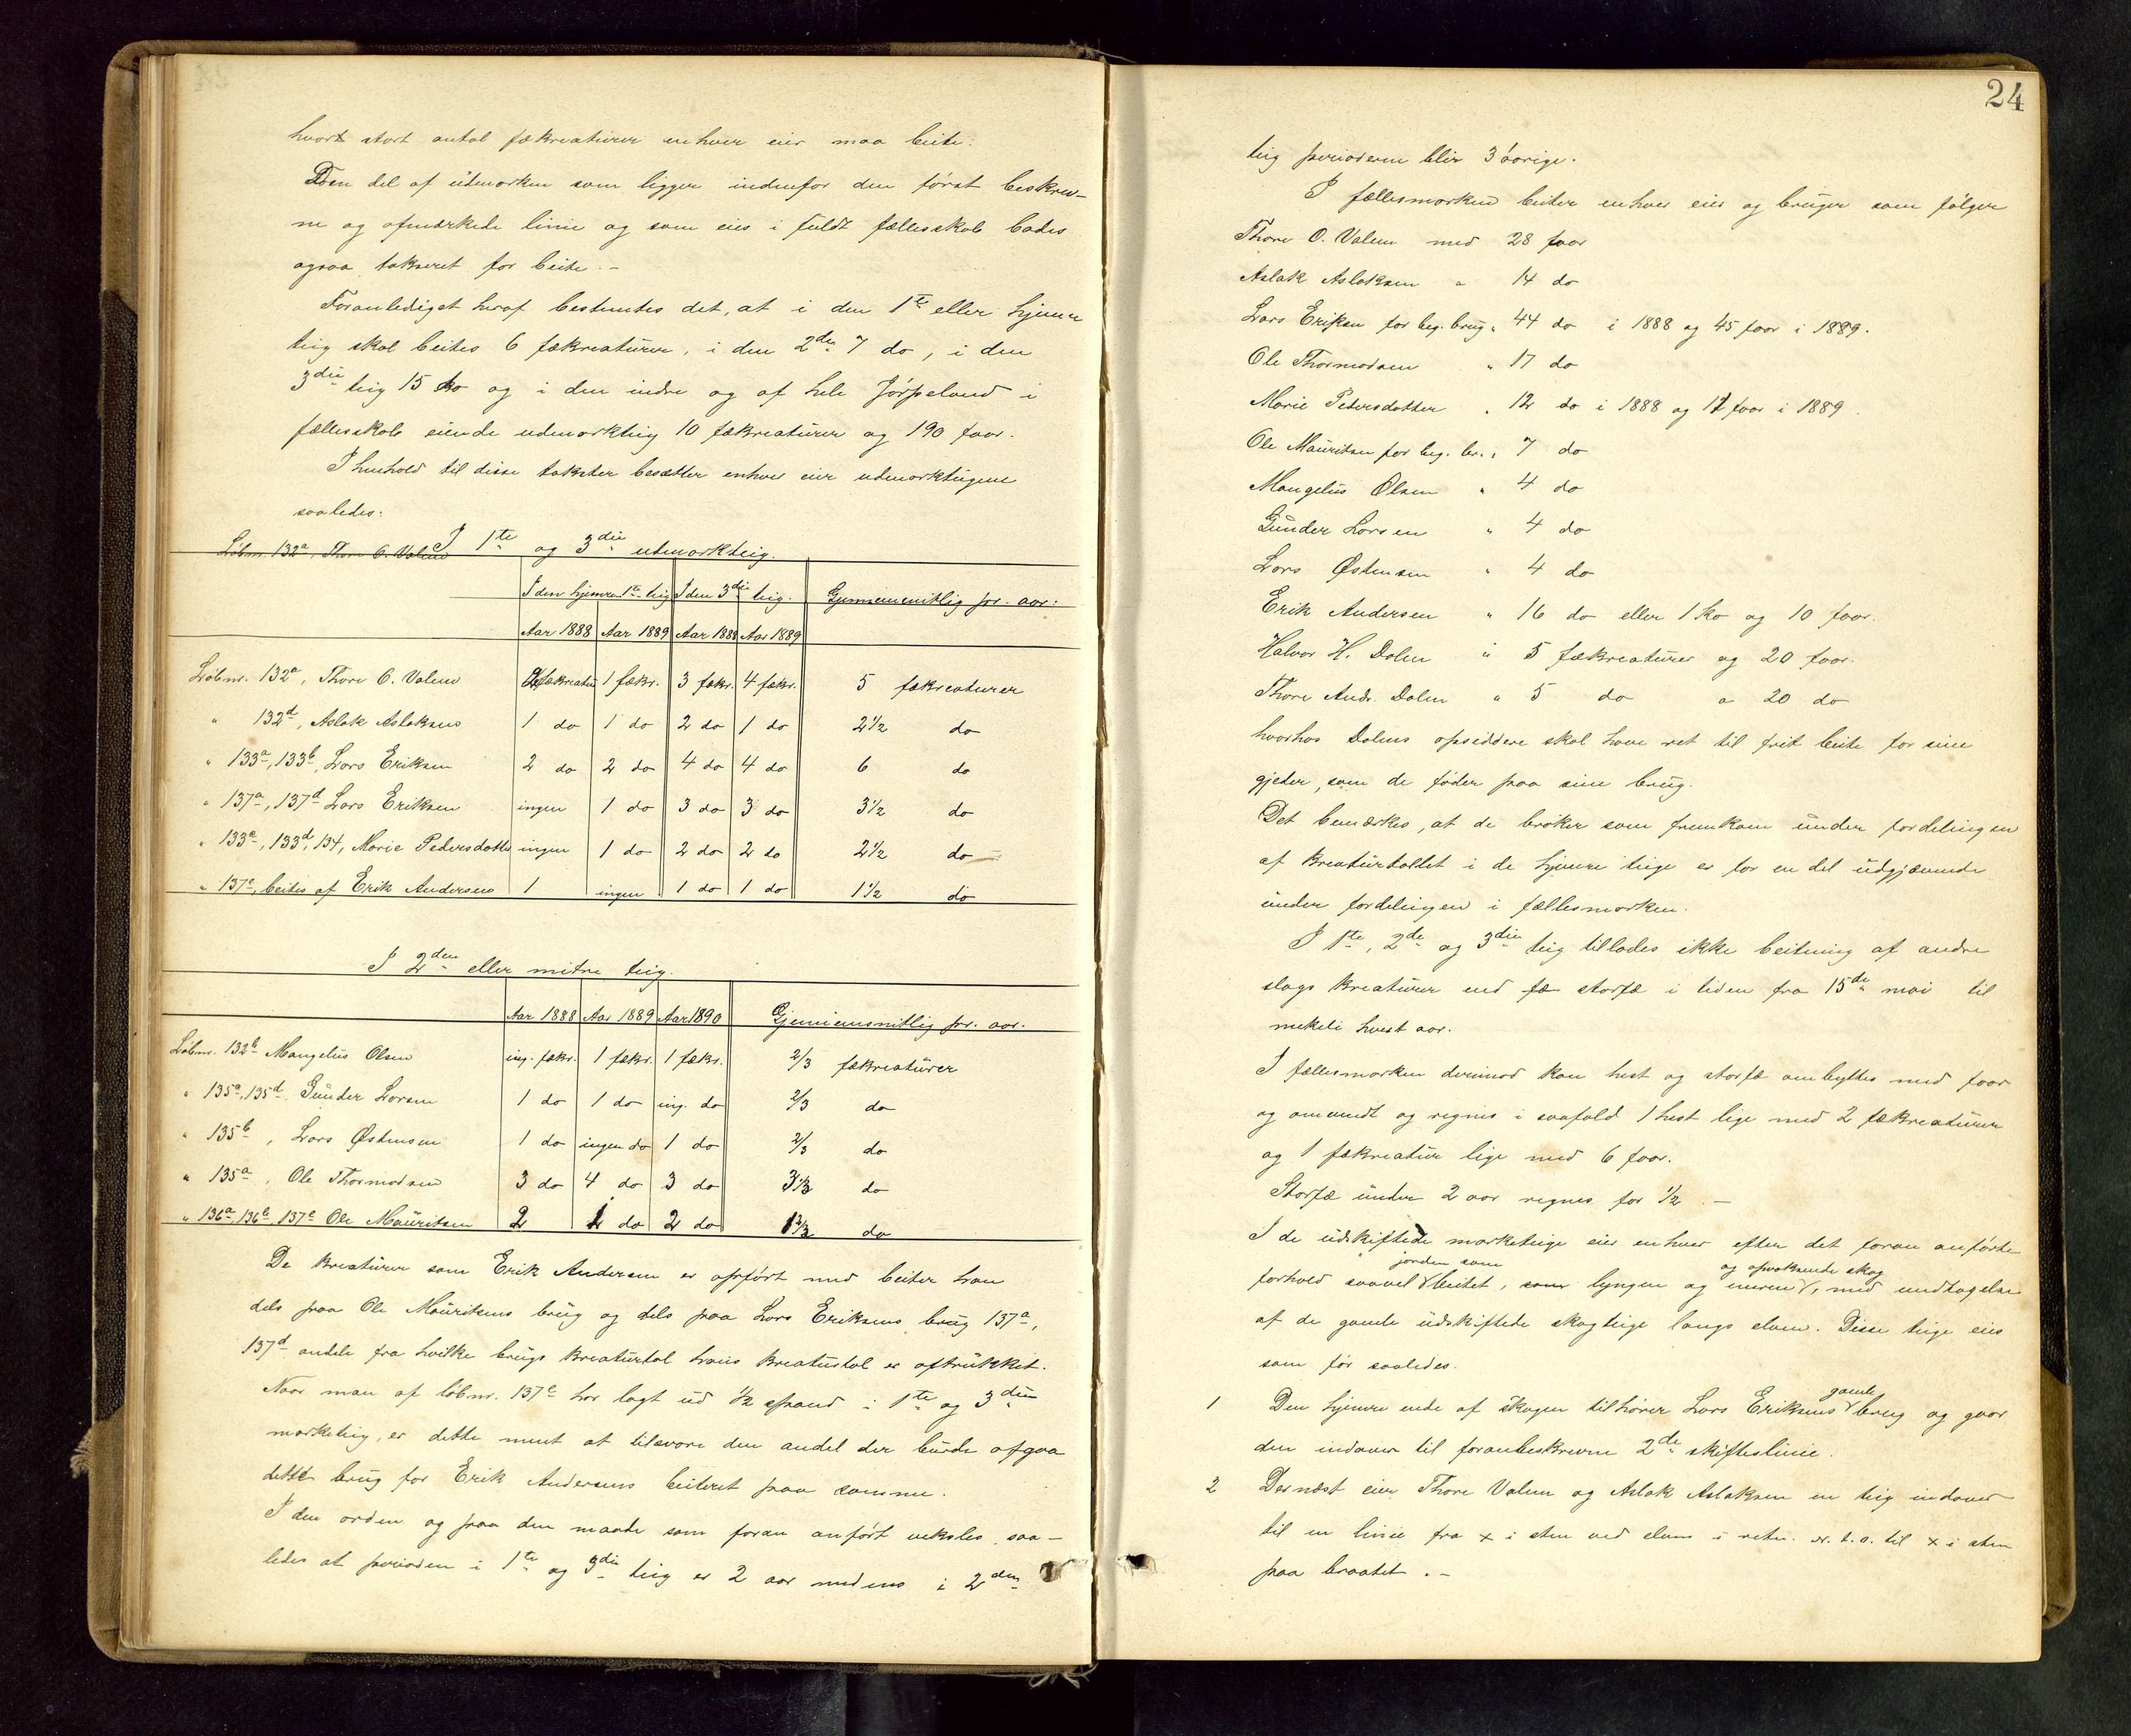 hvort stort antal fækreaturer enhver eier maa beite.
Den del af udmarken som ligger indenfor den først beskrev-
ne og afmærkede linie og som eies i fuldt fællesskab bades
ogsaa takseret for beite. -
Foranlediget heraf bestemtes det, at i den 1te eller hjemre
teig skal beites 6 fækreaturer, i den 2den 7 do, i den
3die teig 15 do og i den indre og af hele Jørpeland i
fællesskab eiende udmarkteig 10 fækreaturer og 190 faar.
I henhold til disse takster besætter enhver eier udmarkteigene
saaledes:
Løbnr. 132a, Thore O. Valem
I 1te og 3die udmarkteig.
I den hjemre 1te teig I den 3die teig. Gjennemsnitlig pr. aar:
Aar 1888 Aar 1889 Aar 1888 Aar 1889
Løbnr. 132a, Thore O. Valem 2 fækreatur 1 fækr. 3 fækr. 4 fækr. 5 fækreaturer
" 132d, Aslak Aslaksen 1 do 1 do 2 do 1 do 2 1/2 do
" 133a, 133b, Lars Eriksen 2 do 2 do 4 do 4 do 6 do
" 137a, 137d Lars Eriksen ingen 1 do 3 do 3 do 3 1/2 do
" 133c, 133d, 134, Marie Pedersdotter ingen 1 do 2 do 2 do 2 1/2 do
" 137c, beites af Erik Andersen 1 ingen 1 do 1 do 1 1/2 do
I 2den eller mitre teig.
Aar 1888 Aar 1889 Aar 1890 Gjennemsnitlig pr. aar.
Løbnr. 132b Mangelius Olsen ing. fækr. 1 fækr. 1 fækr. 2/3 fækreaturer
" 135a, 135d Gunder Larsen 1 do 1 do ing. do 2/3 do
" 135b, Lars Østensen 1 do ingen do 1 do 2/3 do
" 135a, Ole Thormodsen 3 do 4 do 3 do 3 1/3 do
" 136a, 136b, 137c Ole Mauritsen 2 1 do 2 do 1 2/3 do
De kreaturer som Erik Andersen er opført med beiter han
dels paa Ole Mauritsens brug og dels paa Lars Eriksens brug 137a,
137d andele fra hvilke brugs kreaturtal hans kreaturtal er aftrukket.
Naar man af løbnr. 137c har lagt ud 1/2 spand i 1te og 3die
markteig, er dette ment at tilsvare den andel der burde afgaa
dette brug for Erik Andersens beiteret paa samme.
I den orden og paa den maade som foran anført veksles saa-
ledes at perioden i 1te og 3die teig er 2 aar medens i 2den
24
teig perioderne blir 3 aarige.
I fællesmarken beiter enhver eier og bruger som følger
Thore O. Valem med 28 faar
Aslak Aslaksen " 14 do
Lars Eriksen for beg. brug " 44 do i 1888 og 45 faar i 1889.
Ole Thormodsen " 17 do
Marie Pedersdotter " 12 do i 1888 og 11 faar i 1889.
Ole Mauritsen for beg. br. " 7 do
Mangelius Olsen " 4 do
Gunder Larsen " 4 do
Lars Østensen " 4 do
Erik Andersen " 16 do eller 1 ko og 10 faar.
Halvor H. Dalen " 5 fækreaturer og 20 faar.
Thore Andr. Dalen " 5 do " 20 do
hvorhos Dalens opsiddere skal have ret til frit beite for sine
gjeder, som de føder paa sine brug.
Det bemærkes, at de brøker som fremkom under fordelingen
af kreaturtallet i de hjemre teige er for en del udgjævnede
under fordelingen i fællesmarken.
I 1te, 2de og 3die teig tillades ikke beitning af andre
slags kreaturer end fæ storfæ i tiden fra 15de mai til
mikeli hvert aar.
I fællesmarken derimod kan hest og storfæ ombyttes med faar
og omvendt og regnes i saafald 1 hest lige med 2 fækreaturer
og 1 fækreatur lige med 6 faar.
Storfæ under 2 aar regnes for 1/2. -
I de udskiftede markteige eier enhver efter det foran anførte
jorden som og opvoksende skog
forhold saavel beitet, som lyngen og muren, med undtagelse
af de gamle udskiftede skogteige langs elven. Disse teige eies
som før saaledes.
gamle
1 Den hjemre ende af skogen tilhører Lars Eriksens brug og gaar
den indover til foranbeskrevne 2de skifteslinie.
2 Dernæst eier Thore Valem og Aslak Aslaksen en teig indover
til en linie fra x i sten ved elven i retn. til x i sten
paa braatet. -